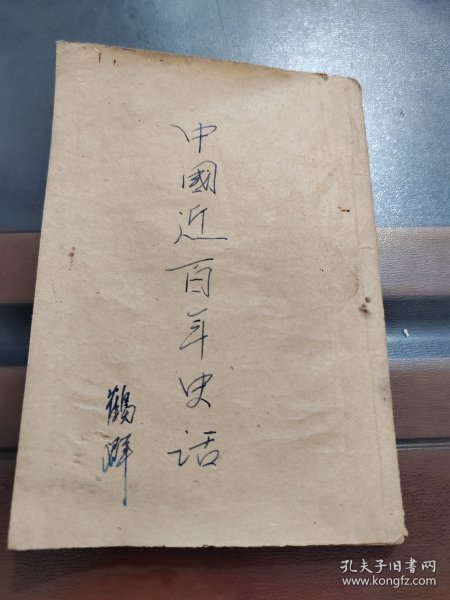 中國近百年史话
鶴群
孔夫子旧书网
www.kongfz.com